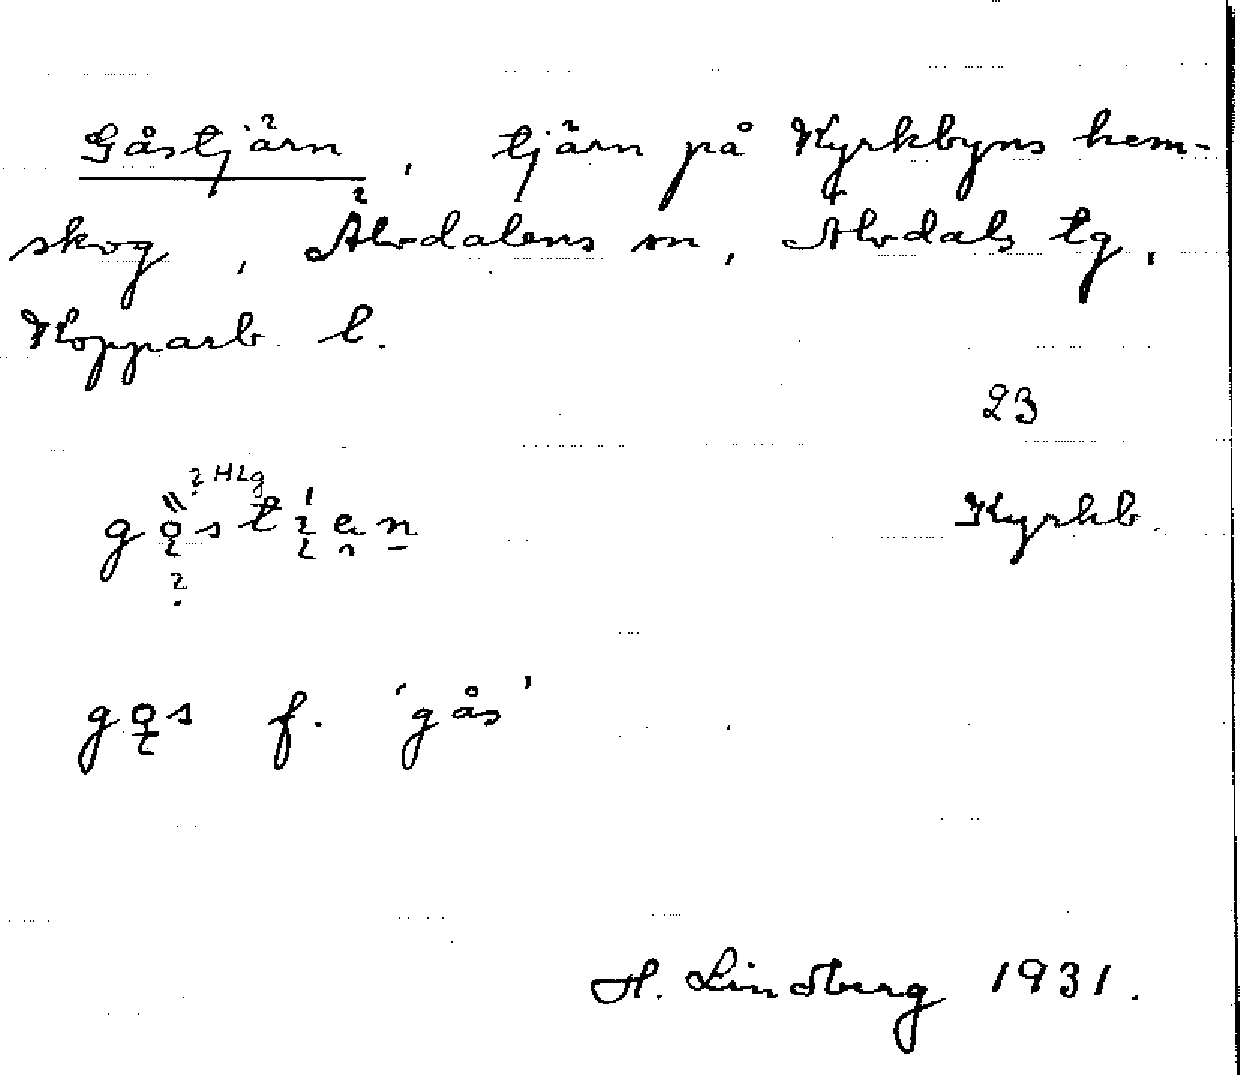 Gåstjärn, tjärn på Kyrkbyns hem-
skog, Älvdalens sn, Älvdals tg,
Kopparb. l.
23
? HLg
Kyrkb.
?
gǫs f. 'gås'
H. Lindberg 1931.